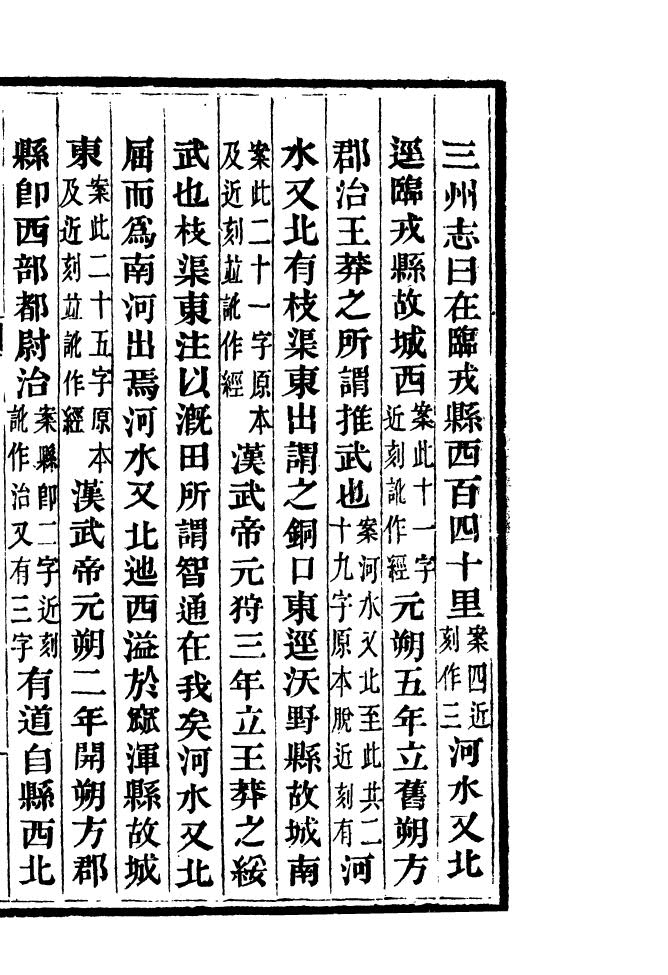 三州志曰在臨戎縣西百四十里案四近刻作三河水又北
逕臨戎縣故城西案此十一字近刻訛作經元朔五年立舊朔方
郡治王莽之所謂推武也案河水又北至此共二十九字原本脫近刻有河
水又北有枝渠東出謂之銅口東逕沃野縣故城南
案此二十一字原本及近刻竝訛作經漢武帝元狩三年立王莽之綏
武也枝渠東注以溉田所謂智通在我矣河水又北
屈而為南河出焉河水又北迆西溢於窳渾縣故城
東案此二十五字原本及近刻竝訛作經漢武帝元朔二年開朔方郡
縣卽西部都尉治案縣卽二字近刻訛作治又有三字有道自縣西北